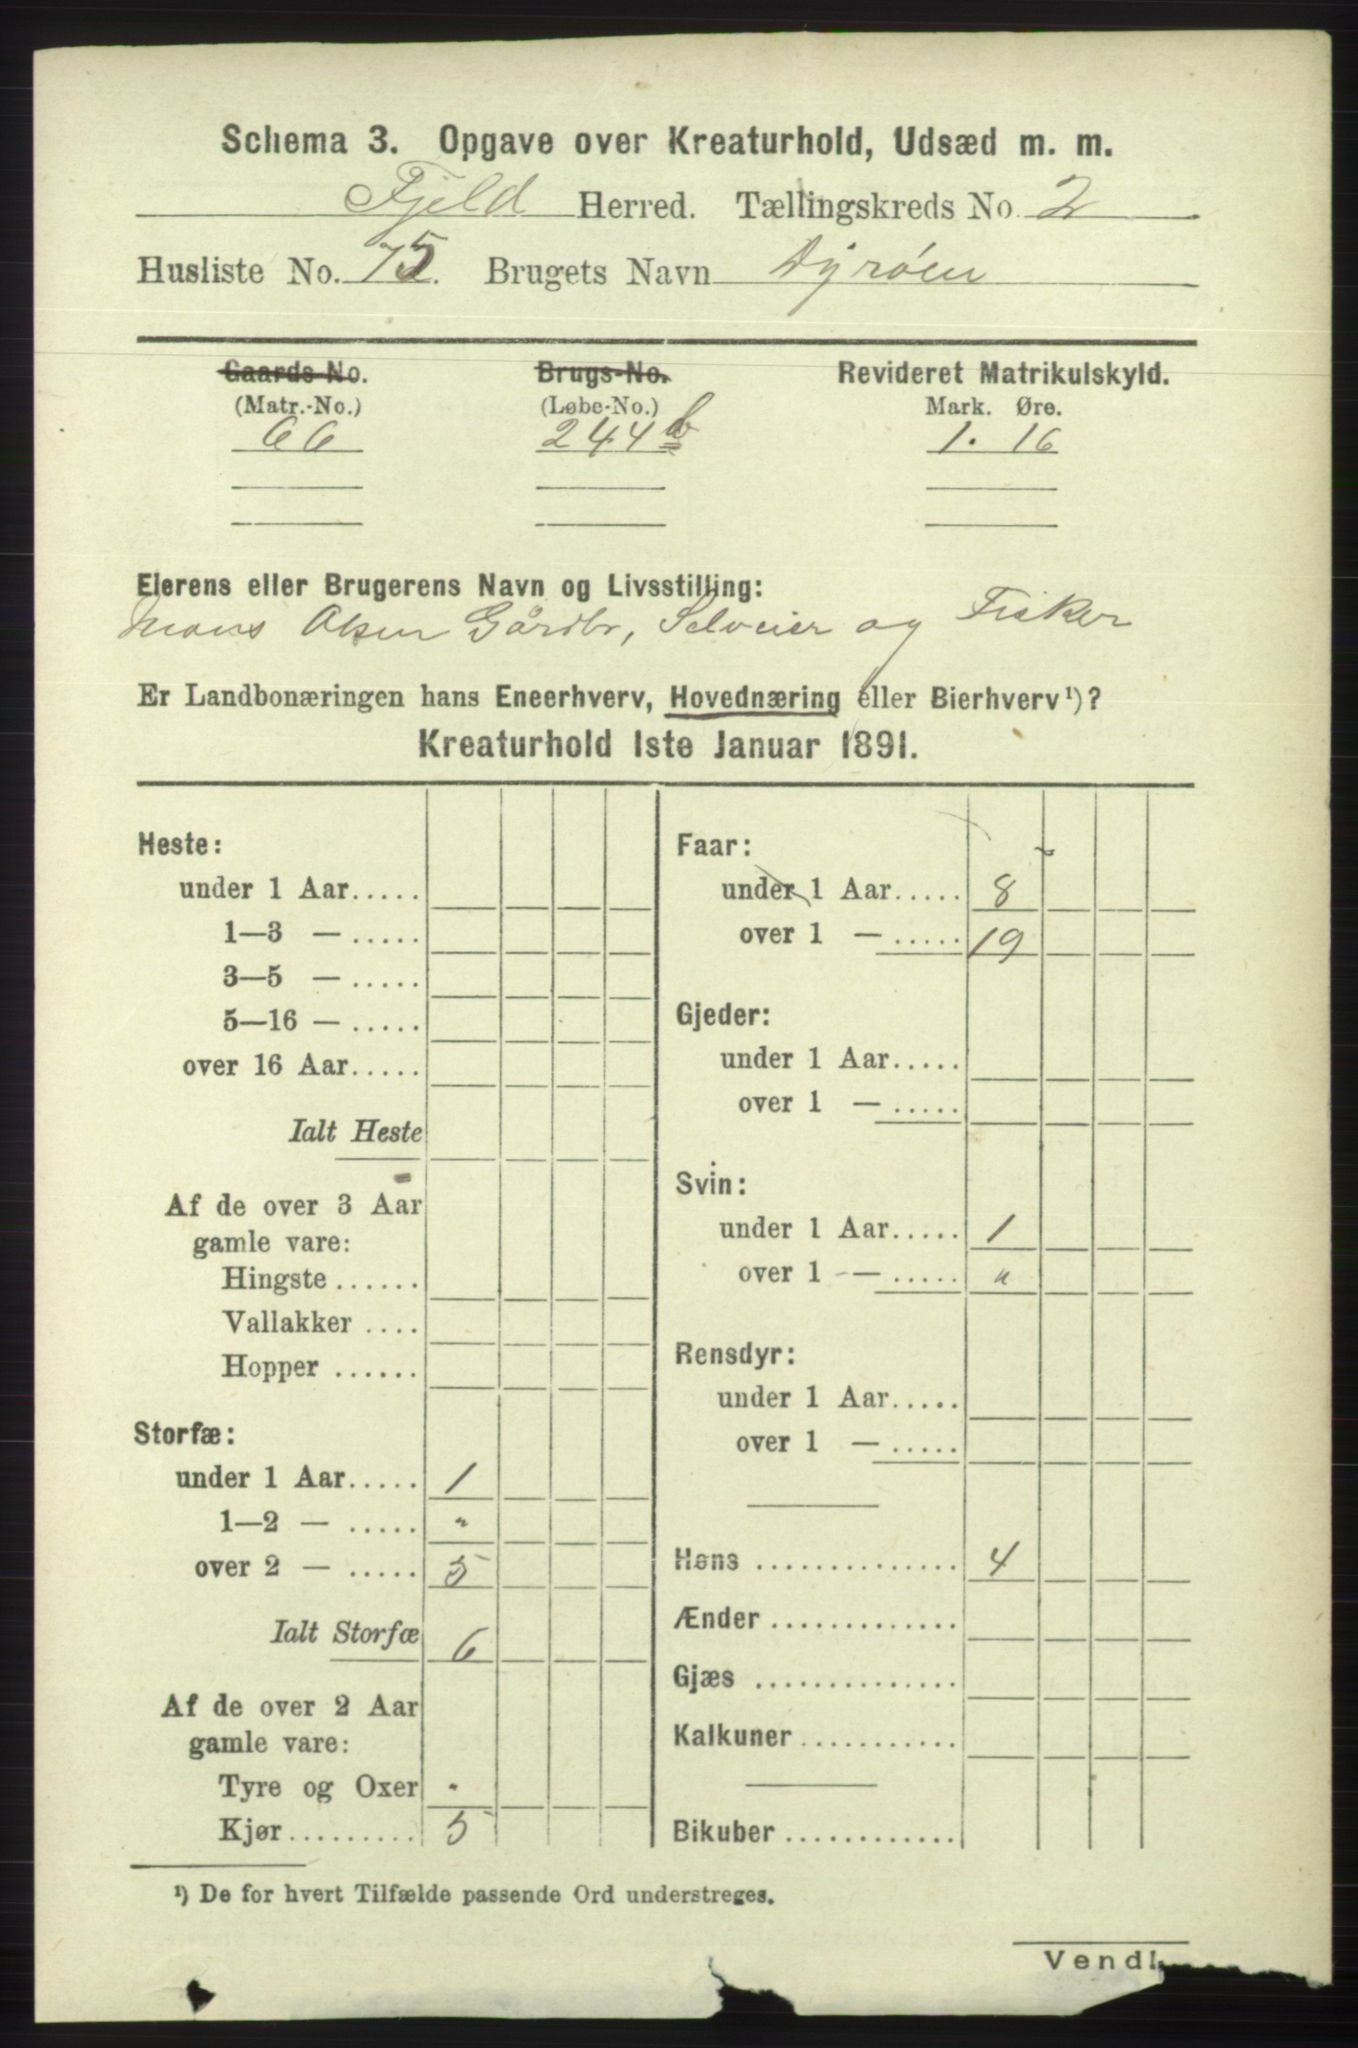 Schema 3. Opgave over Kreaturhold, Udsæd m. m.
Fjeld Herred. Tællingskreds No. 2
Husliste No. 75. Brugets Navn Dyrøen
Gaards-No. Brugs-No. Revideret Matrikulskyld.
(Matr.-No.) (Løbe-No.) Mark. Øre.
66 244 b 1. 16
Eierens eller Brugerens Navn og Livsstilling:
Mons Olsen Gårdbr, Selveier og Fisker
Er Landbonæringen hans Eneerhverv, Hovednæring eller Bierhverv¹)?
Kreaturhold 1ste Januar 1891.
Heste:
under 1 Aar.....
1—3 — .....
3—5 — .....
5—16 — .....
over 16 Aar.....
Ialt Heste
Af de over 3 Aar
gamle vare:
Hingste ......
Vallakker ....
Hopper ......
Storfæ:
under 1 Aar..... 1
1—2 — ..... "
over 2 — ..... 5
Ialt Storfæ 6
Af de over 2 Aar
gamle vare:
Tyre og Oxer "
Kjør.......... 5
Faar:
under 1 Aar..... 8
over 1 — ..... 19
Gjeder:
under 1 Aar.....
over 1 — .....
Svin:
under 1 Aar..... 1
over 1 — ..... "
Rensdyr:
under 1 Aar.....
over 1 — .....
Høns .............. 4
Ænder .............
Gjæs ..............
Kalkuner ...........
Bikuber ............
¹) De for hvert Tilfælde passende Ord understreges.
Vend!